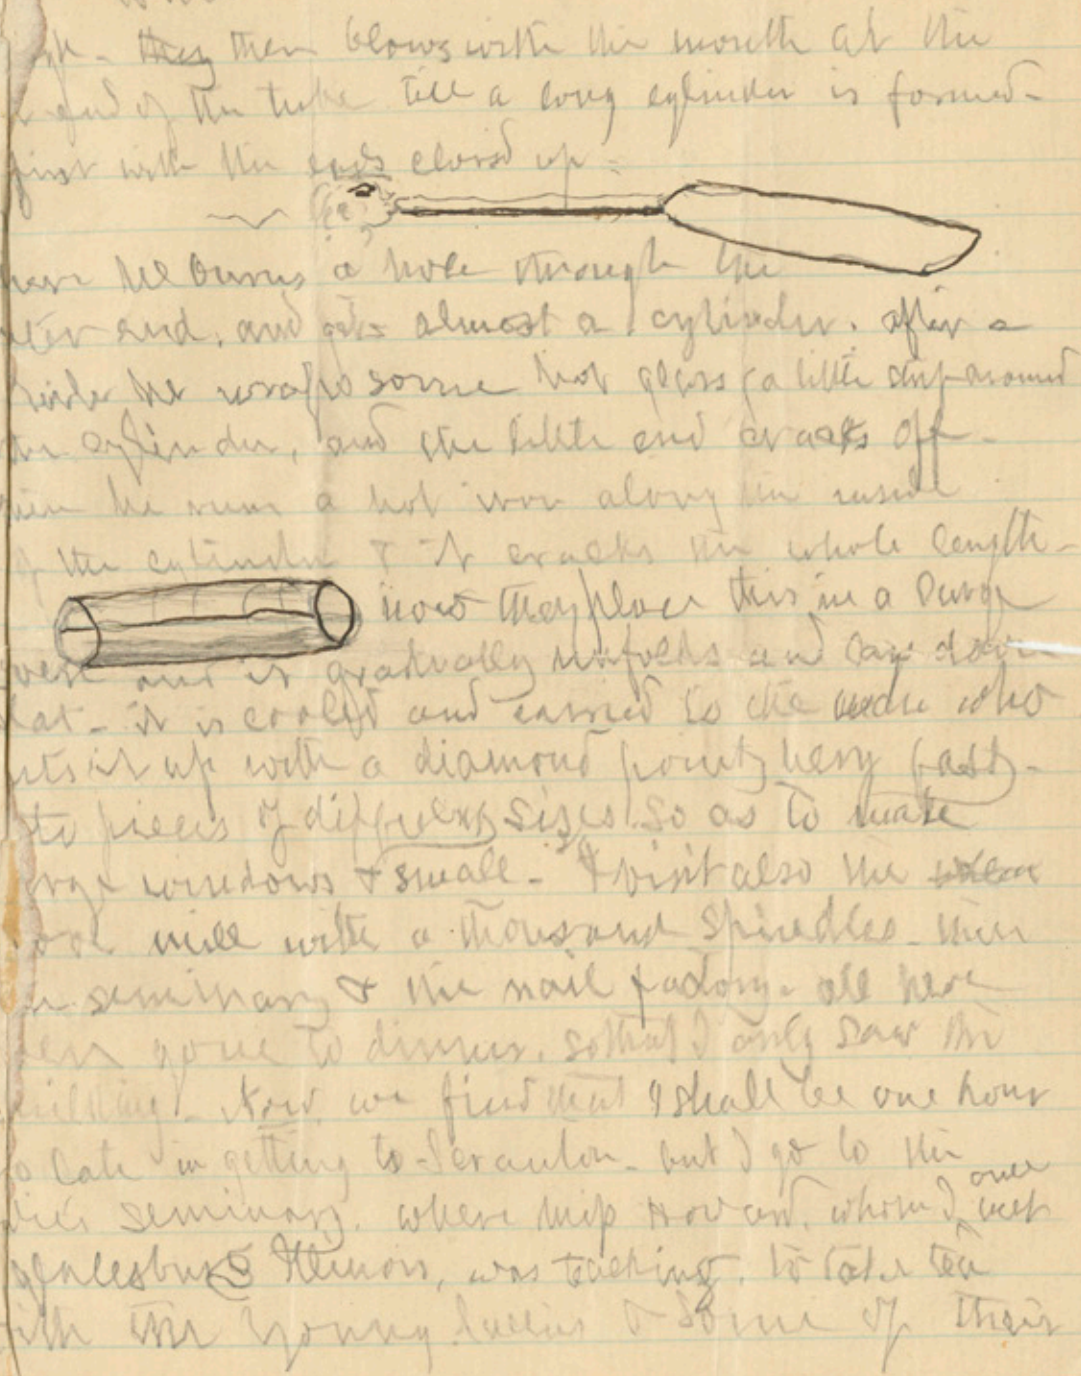 then blows with the mouth at the
end of the tube till a long cylinder is formed-
first with the ends closed up -
he burns a hole through the
end, and gets almost a cylinder. after a
while he wraps some hot glass (a little strip around
cylinder, and the little end cracks off -
he runs a hot iron along the inside
of the cylinder & it cracks the whole length -
now they place this in a large
oven and it gradually unfolds and lays down
flat - it is cooled and carried to the man who
cuts it up with a diamond point, very fast, -
to pieces of different sizes so as to make
large windows & small - I visit also the
mill with a thousand spindles - then
seminary & the nail factory - all here
gone to dinner, so that I only saw the
building - Now we find that I shall be one hour
late in getting to Scranton - but I go to the
seminary, where Miss Howard, whom I once met
Galesburg Illinois, was teaching, to take tea
with the young ladies & some of their